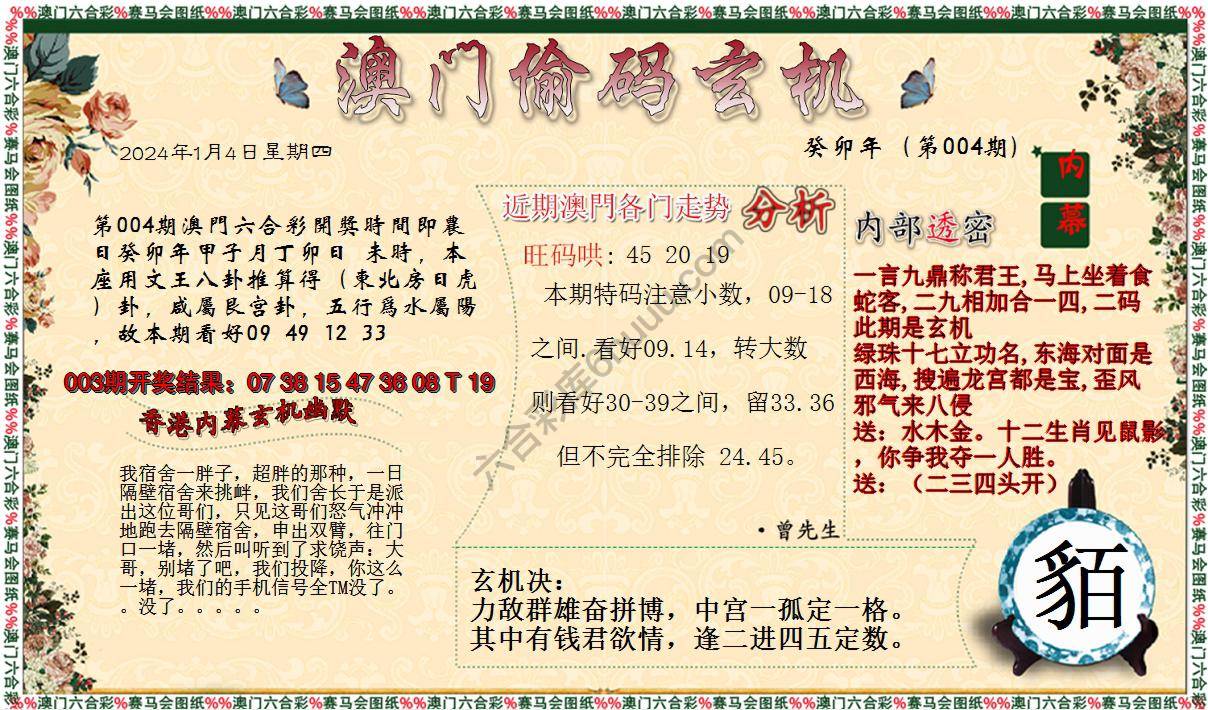 %%澳门六合彩%赛马会图纸%%澳门六合彩%赛马会图纸%%澳门六合彩%赛马会图纸%%澳门六合彩%赛马会图纸%%澳门六合彩%赛马会图纸%%澳门六合彩%赛马会图纸%%
澳门偷码玄机
2024年1月4日星期四
癸卯年（第004期）
内幕
第004期澳門六合彩開獎時間即農
日癸卯年甲子月丁卯日 未時，本
座用文王八卦推算得（東北房日虎
）卦，咸屬艮宫卦，五行爲水屬陽
，故本期看好09 49 12 33
003期开奖结果：07 38 15 47 36 08 T 19
香港内幕玄机幽默
我宿舍一胖子，超胖的那种，一日
隔壁宿舍来挑衅，我们舍长于是派
出这位哥们，只见这哥们怒气冲冲
地跑去隔壁宿舍，申出双臂，往门
口一堵，然后叫听到了求饶声：大
哥，别堵了吧，我们投降，你这么
一堵，我们的手机信号全TM没了。
。没了。。。。。
近期澳門各门走势 分析
旺码哄: 45 20 19
本期特码注意小数，09-18
之间.看好09.14，转大数
则看好30-39之间，留33.36
但不完全排除 24.45。
·曾先生
内部透密
一言九鼎称君王,马上坐着食
蛇客,二九相加合一四,二码
此期是玄机
绿珠十七立功名,东海对面是
西海,搜遍龙宫都是宝,歪风
邪气来八侵
送：水木金。十二生肖见鼠影
，你争我夺一人胜。
送：（二三四头开）
玄机决：
力敌群雄奋拼博，中宫一孤定一格。
其中有钱君欲情，逢二进四五定数。
貊